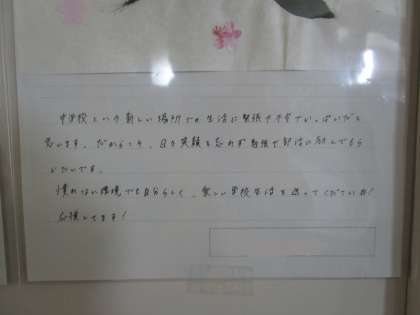 中学校という新しい場所での生活に緊張や不安でいっぱいだと
思います。だからこそ、日々笑顔を忘れず勉強や部活に励んでもら
いたいです。
慣れない環境でも自分らしく、楽しい学校生活を送ってくださいね!
応援してます!